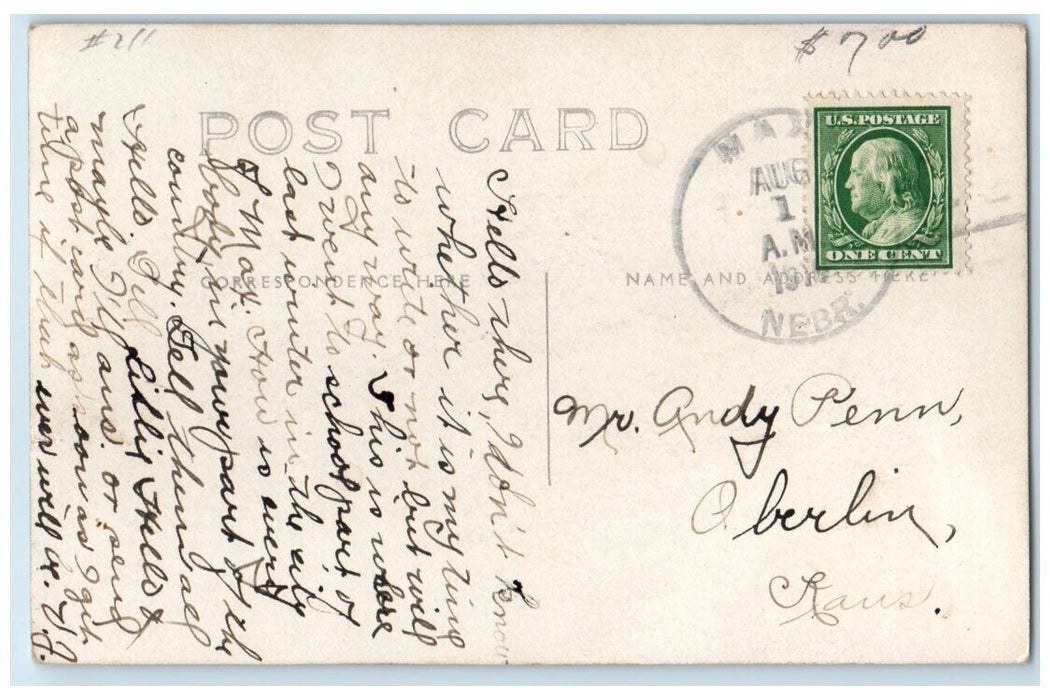 #211
$7.00
POST CARD
U.S. POSTAGE
ONE CENT
MAX
AUG
1
A.M.
191
NEBR.
CORRESPONDENCE HERE
NAME AND ADDRESS HERE
Hello there, I don't know
whether it is my time
to write or not but will
any way. This is where
I went to school part of
last winter in the city
of Max. How is every
body in your part of the
country. Tell them all
Hello. Tell Lillie Hello &
mayble I'll ans. or send
a post card as soon as I get
time if that ever will be.
Mr. Andy Penn,
Oberlin,
Kans.